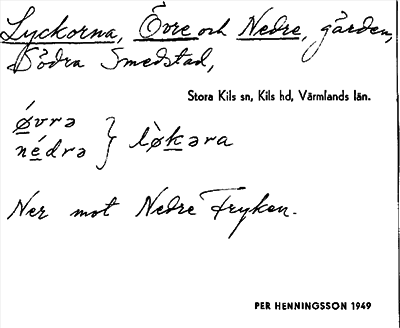 Lyckorna, Övre och Nedre, gården,
Södra Smedstad,
Stora Kils sn, Kils hd, Värmlands län.
ǿvrə
nédrə } lø̀kəra
Ner mot Nedre Fryken.
PER HENNINGSSON 1949